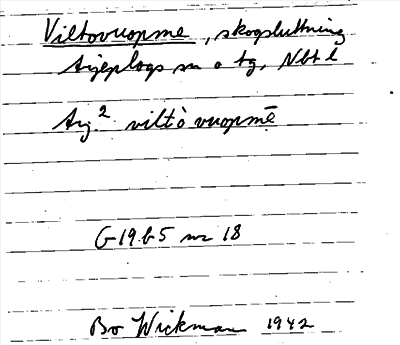 Viltovuopme, skogsluttning
Arjeplogs sn o tg, Nbt l
Arj.² viltò vuopmē
G 19 b 5 nr 18
Bo Wickman 1942